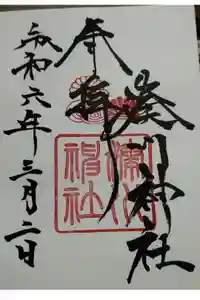 湊川神社
奉拝
令和六年三月二日
湊川
神社